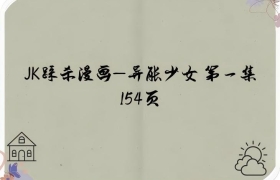 JK踩杀漫画—异能少女 第一集
154页